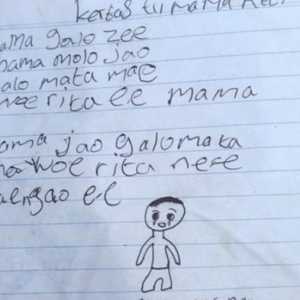 kertas tu mama
ama galo zee
mama molo jao
alo mata mae
woe rita ee mama
ama jao galo mata
woe rita nese
ee